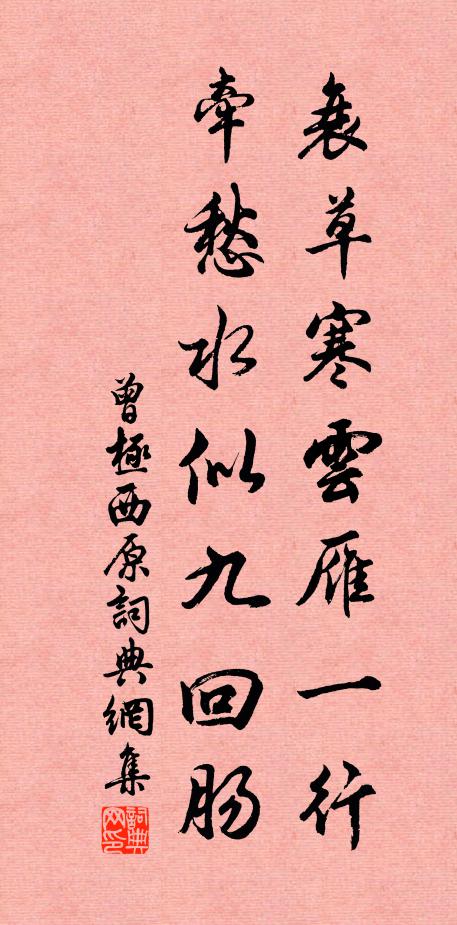 衰草寒雲雁一行
牽愁水似九回肠
曾極西原詞典網集
詞典网印